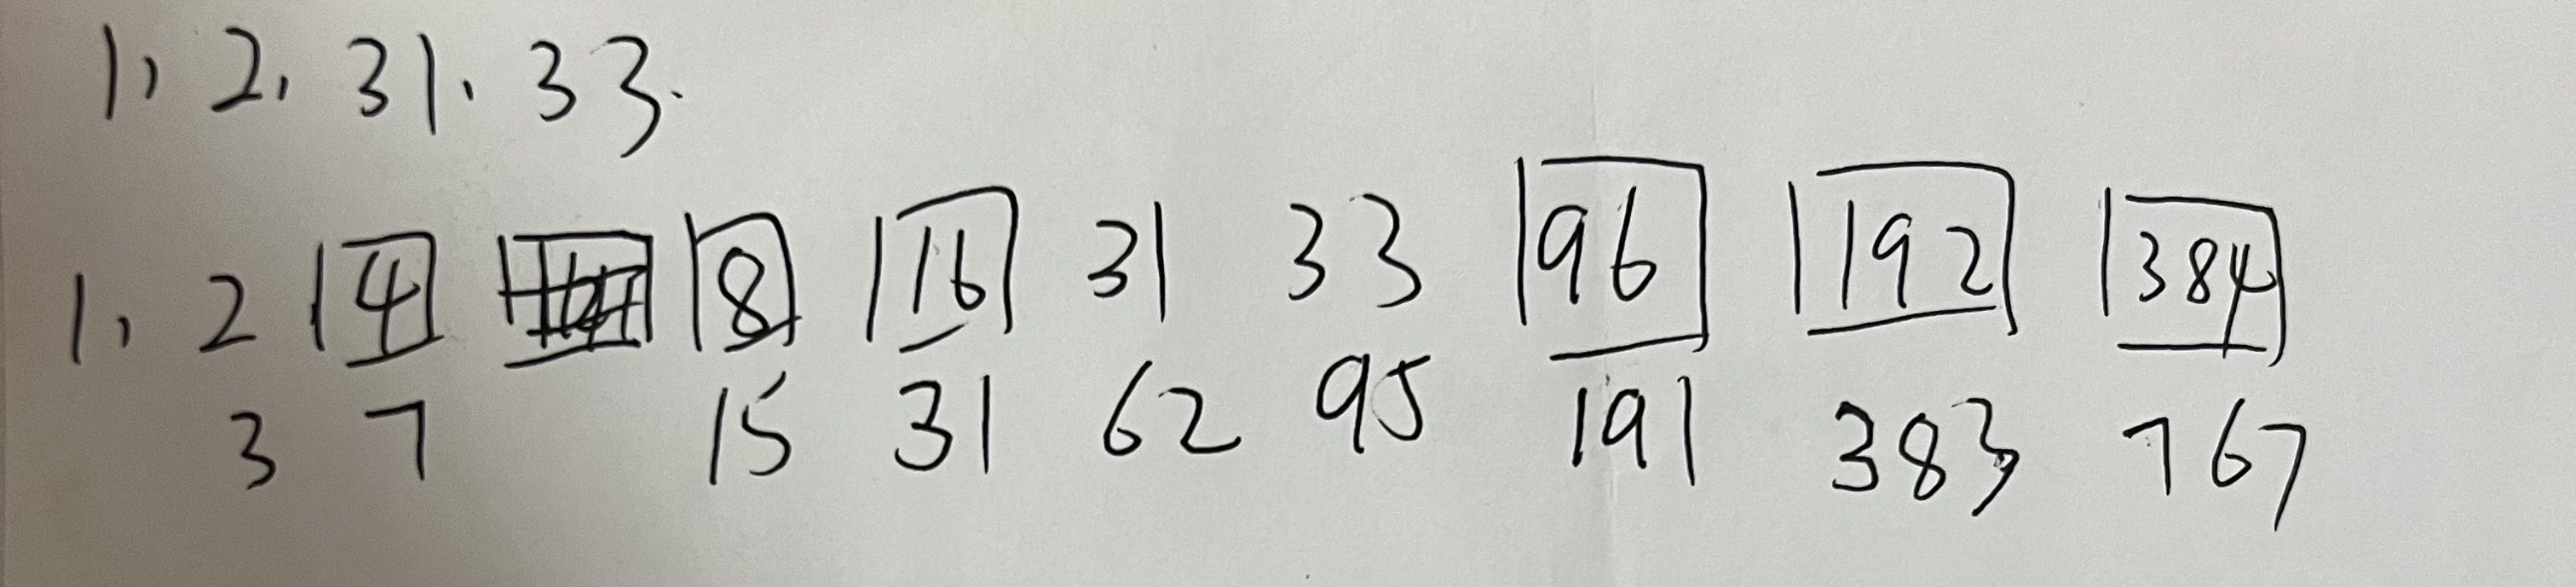 1, 2, 31, 33.
1, 2 4 8 16 31 33 96 192 384
3 7 15 31 62 95 191 383 767